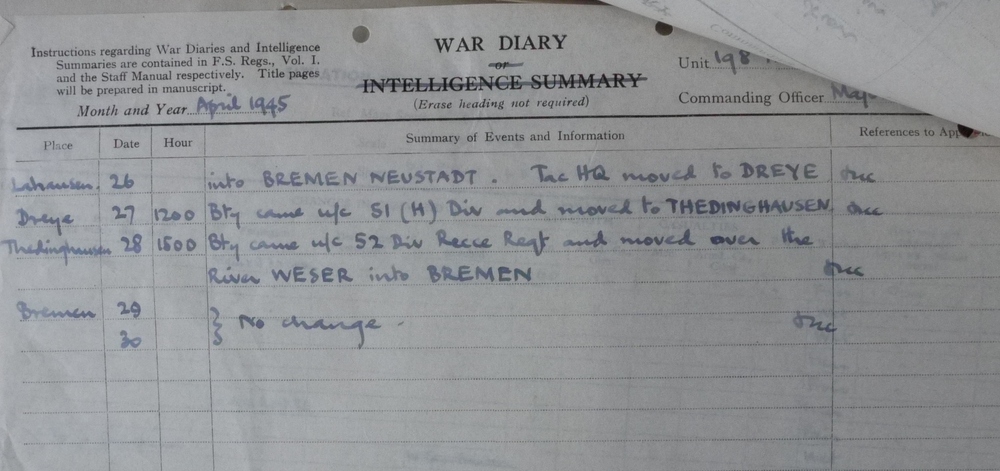 Instructions regarding War Diaries and Intelligence
Summaries are contained in F.S. Regs., Vol. I.
and the Staff Manual respectively. Title pages
will be prepared in manuscript.
Month and Year April 1945
WAR DIARY
or
INTELLIGENCE SUMMARY
(Erase heading not required)
Unit 198
Commanding Officer Maj
Place Date Hour Summary of Events and Information References to App
Lahausen. 26 into BREMEN NEUSTADT. Tac HQ moved to DREYE
Dreye 27 1200 Bty came u/c 51 (H) Div and moved to THEDINGHAUSEN
Thedinghausen 28 1500 Bty came u/c 52 Div Recce Regt and moved over the
River WESER into BREMEN
Bremen 29
} No change.
30